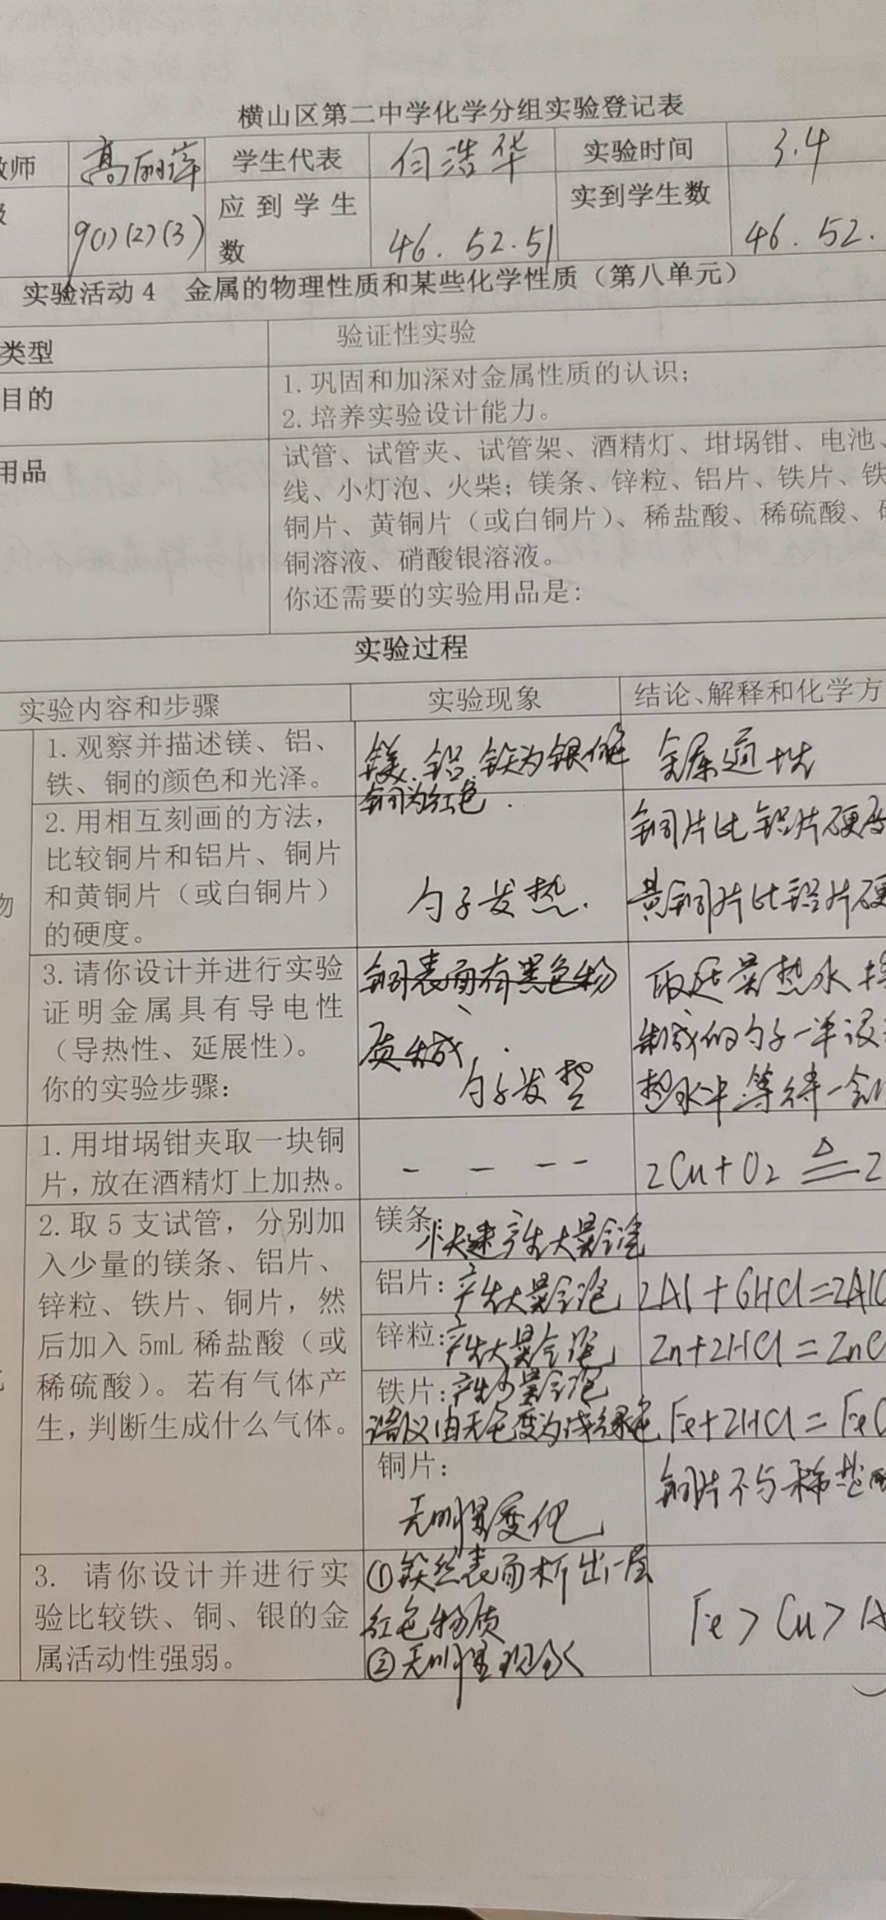 横山区第二中学化学分组实验登记表
教师 高丽萍 学生代表 白浩华 实验时间 3.4
9(1)(2)(3) 应到学生数 46.52.51 实到学生数 46.52.
实验活动4 金属的物理性质和某些化学性质（第八单元）
类型 验证性实验
目的 1.巩固和加深对金属性质的认识；
2.培养实验设计能力。
用品 试管、试管夹、试管架、酒精灯、坩埚钳、电池、
线、小灯泡、火柴；镁条、锌粒、铝片、铁片、铁
铜片、黄铜片（或白铜片）、稀盐酸、稀硫酸、硫
铜溶液、硝酸银溶液。
你还需要的实验用品是：
实验过程
实验内容和步骤 实验现象 结论、解释和化学方
物
1.观察并描述镁、铝、
铁、铜的颜色和光泽。
镁、铝、铁为银白色
铜为红色.
金属
2.用相互刻画的方法，
比较铜片和铝片、铜片
和黄铜片（或白铜片）
的硬度。
勺子发热.
铜片比铝片硬度
黄铜片比铝片硬
3.请你设计并进行实验
证明金属具有导电性
（导热性、延展性）。
你的实验步骤：
铜表面有黑色物
质生成.
勺子发热
取适量热水 将
制成的勺子一半浸
热水中.等待一会
1.用坩埚钳夹取一块铜
片，放在酒精灯上加热。
— — — —
2Cu+O₂ ≜ 2
2.取5支试管，分别加
入少量的镁条、铝片、
锌粒、铁片、铜片，然
后加入5mL稀盐酸（或
稀硫酸）。若有气体产
生，判断生成什么气体。
镁条 快速产生大量气泡
铝片：产生大量气泡 2Al+6HCl=2AlC
锌粒：产生大量气泡 Zn+2HCl=ZnC
铁片：产生少量气泡
溶液由无色变为浅绿色 Fe+2HCl=FeC
铜片：
无明显变化
铜片不与稀盐酸
3. 请你设计并进行实
验比较铁、铜、银的金
属活动性强弱。
①铁丝表面析出一层
红色物质
②无明显现象
Fe>Cu>A